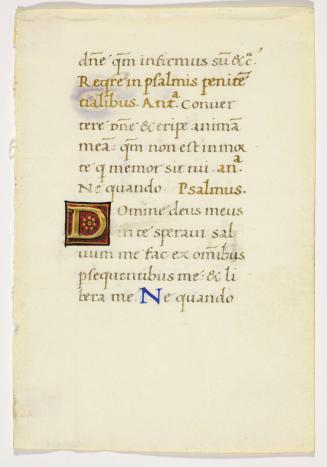 dn̄e q̄m infirmus sū &c̄.
Req̄re in psalmis penitē
tialibus. Antᵃ. Conver
tere dn̄e & eripe animā
meā: q̄m non est in mor
te q̄ memor sit tui. anᵃ.
Ne quando Psalmus.
Domine deus meus
in te speravi sal
vum me fac ex om̄ibus
ꝑsequentibus me: & li
bera me. Ne quando